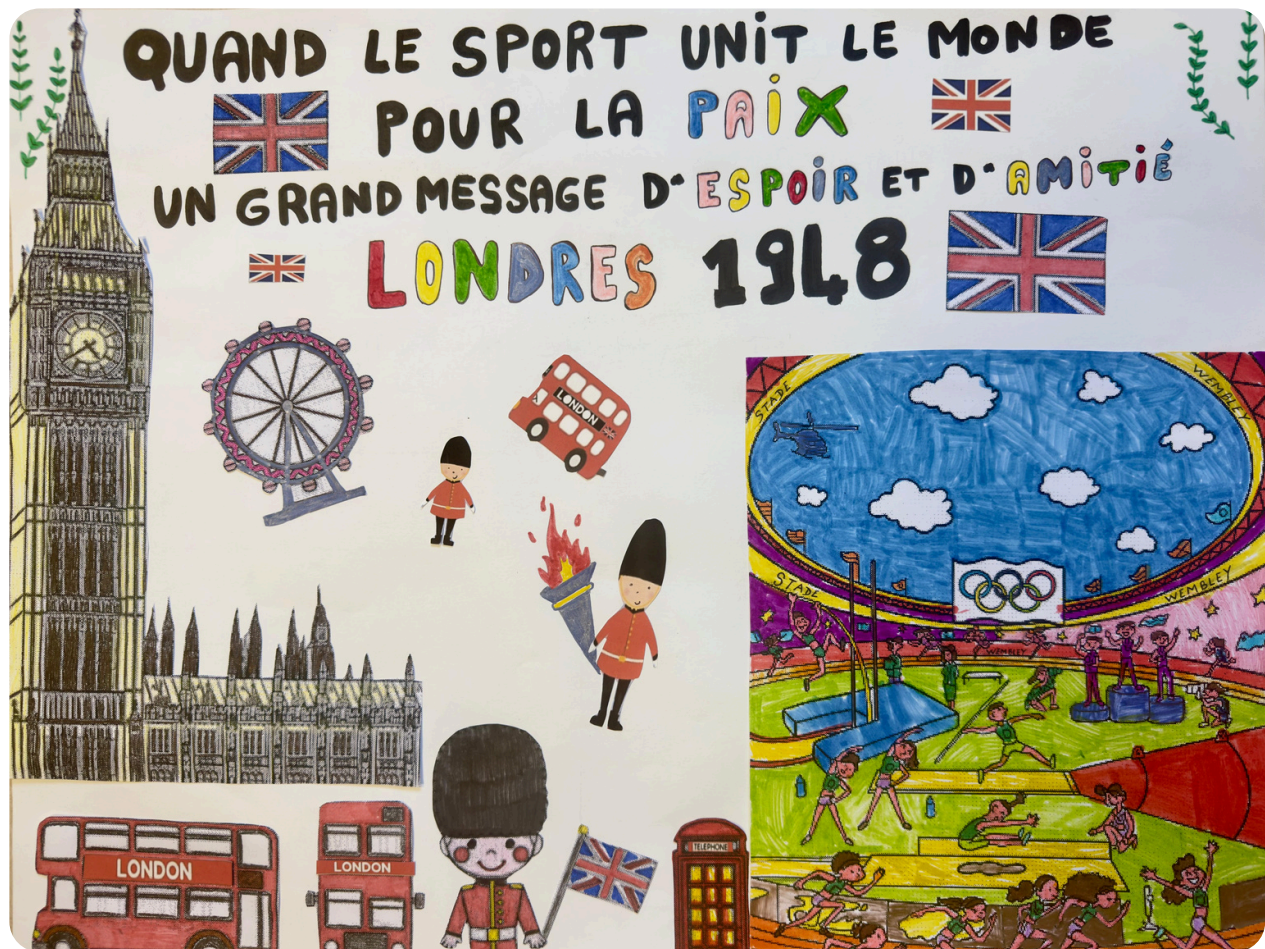 QUAND LE SPORT UNIT LE MONDE
POUR LA PAIX
UN GRAND MESSAGE D'ESPOIR ET D'AMITIÉ
LONDRES 1948
LONDON
STADE WEMBLEY
STADE WEMBLEY
WEMBLEY
LONDON
LONDON
TELEPHONE